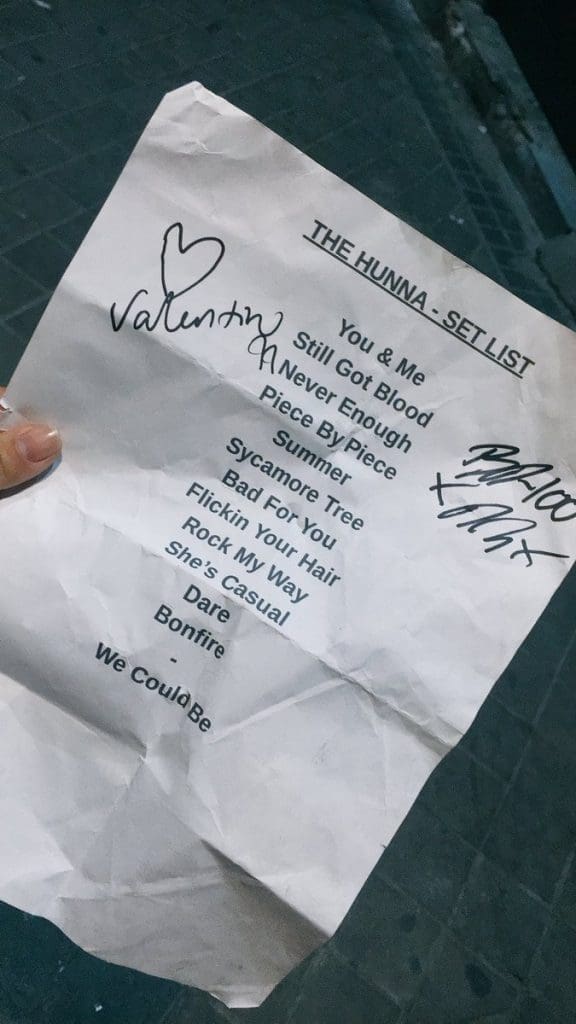 THE HUNNA - SET LIST
Valentino
You & Me
Still Got Blood
Never Enough
Piece By Piece
Summer
Sycamore Tree
Bad For You
Flickin Your Hair
Rock My Way
She's Casual
Dare
Bonfire
-
We Could Be